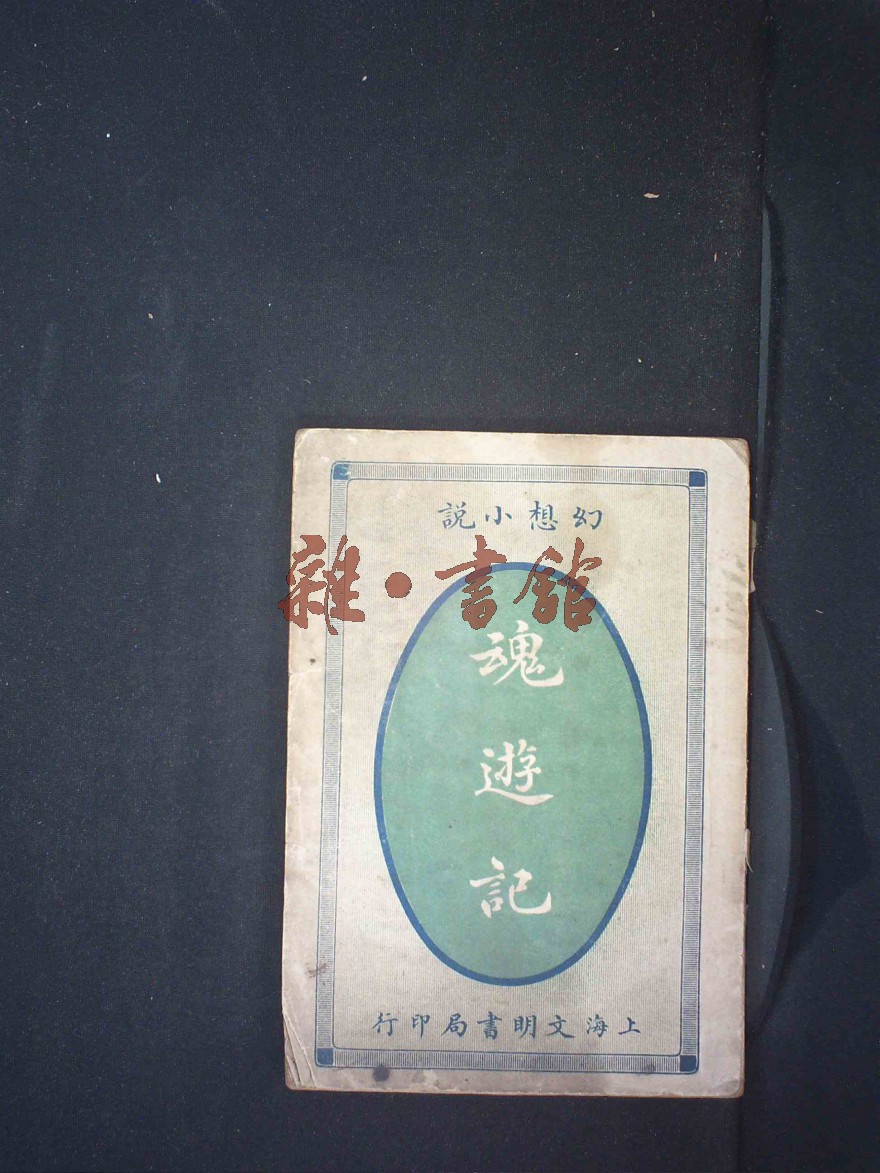 幻想小説
雜·書館
魂遊記
上海文明書局印行